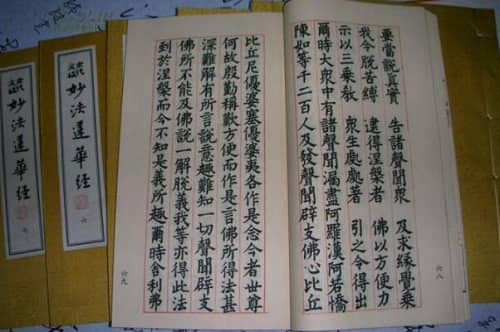 要當說真實 告諸聲聞眾 及求緣覺乘
我令脫苦縛 逮得涅槃者 佛以方便力
示以三乘教 眾生處處著 引之令得出
爾時大眾中有諸聲聞漏盡阿羅漢阿若憍
陳如等千二百人及發聲聞辟支佛心比丘
六八
比丘尼優婆塞優婆夷各作是念今者世尊
何故殷勤稱歎方便而作是言佛所得法甚
深難解有所言說意趣難知一切聲聞辟支
佛所不能及佛說一解脫義我等亦得此法
到於涅槃而今不知是義所趣爾時舍利弗
六九
妙法蓮華經
六
妙法蓮華經
七